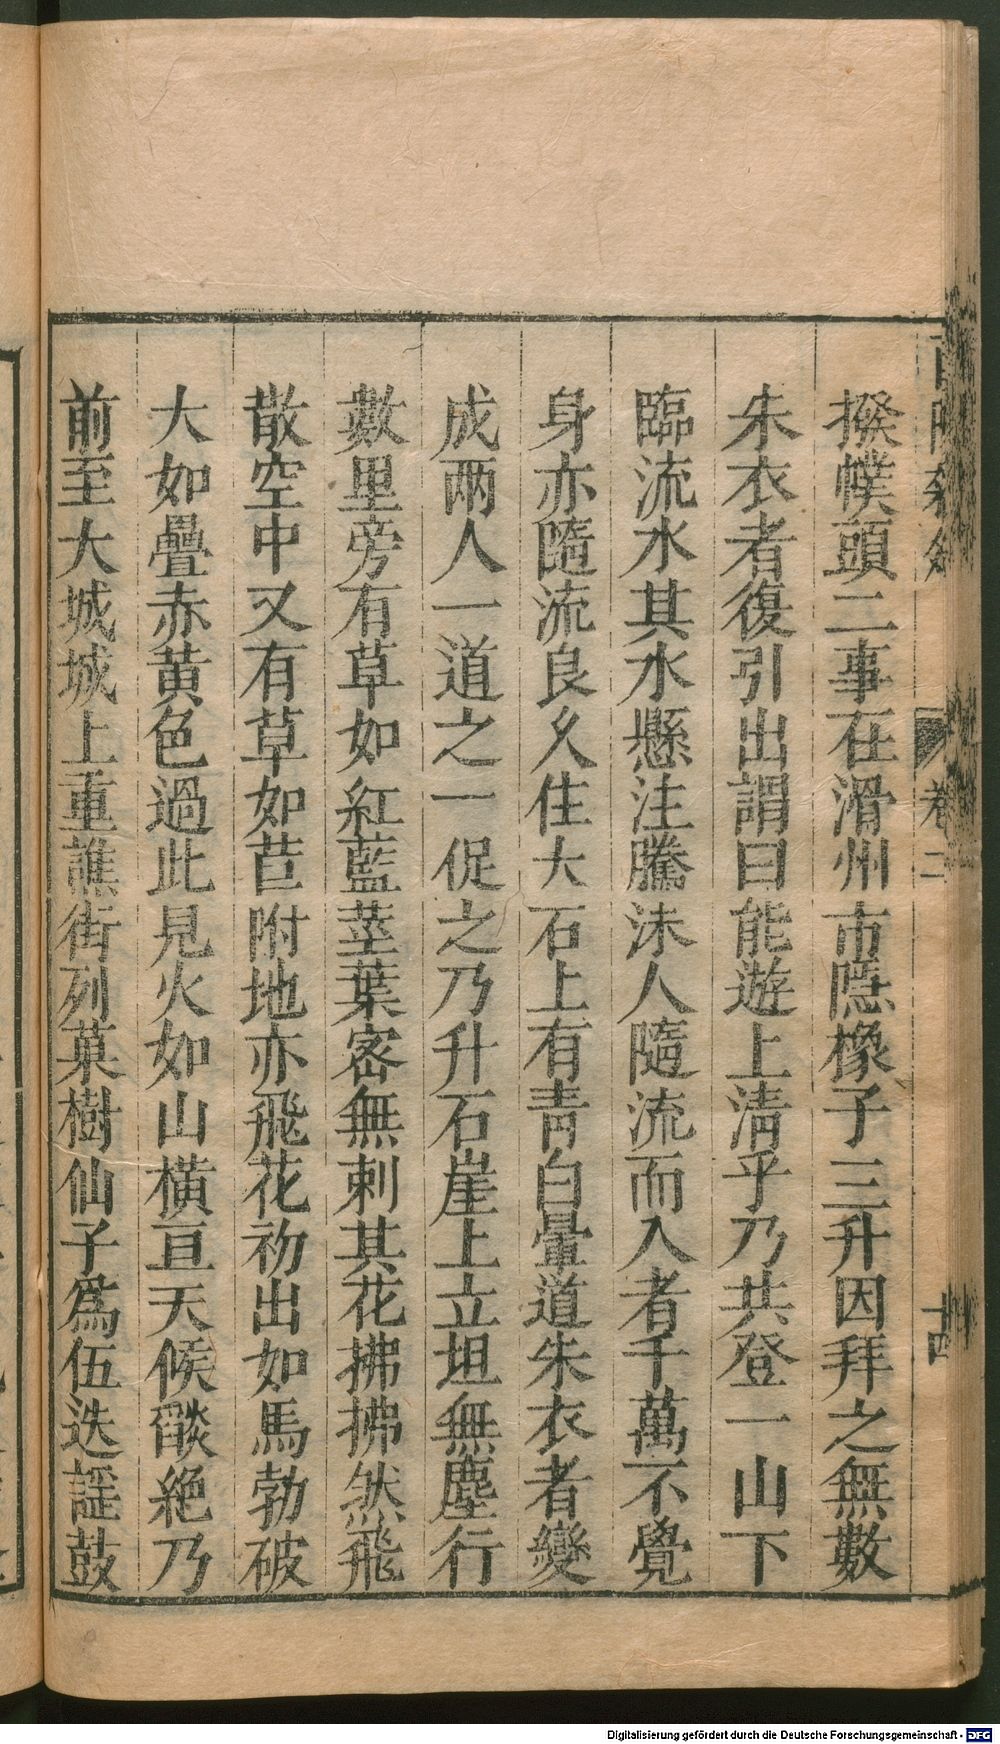 卷二
十四
撥幞頭二事在滑州市隱橡子三升因拜之無數
朱衣者復引出謂曰能遊上清乎乃共登一山下
臨流水其水懸注騰沫人隨流而入者千萬不覺
身亦隨流良久住大石上有青白暈道朱衣者變
成两人一道之一促之乃升石崖上立坦無塵行
數里旁有草如紅藍莖葉密無刺其花拂拂然飛
散空中又有草如苣附地亦飛花初出如馬勃破
大如疊赤黃色過此見火如山橫亘天候燄絶乃
前至大城城上重譙街列菓樹仙子爲伍迭謡鼓
Digitalisierung gefördert durch die Deutsche Forschungsgemeinschaft - DFG